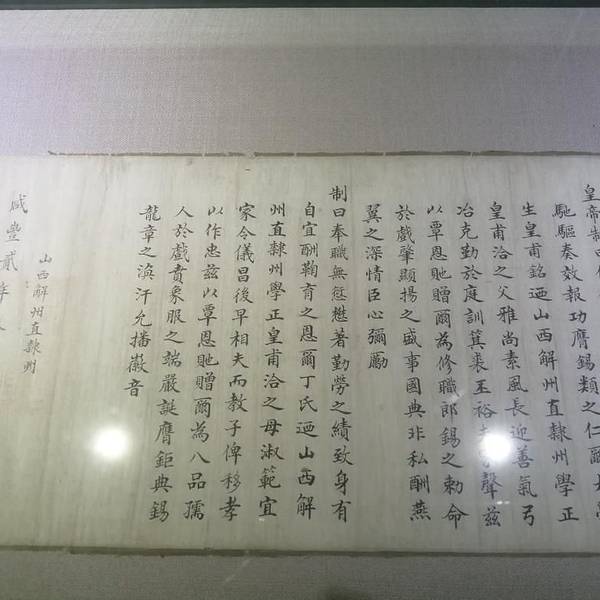 皇帝制曰
馳驅奏效報功膺錫類之仁爾
生皇甫銘迺山西解州直隸州學正
皇甫洽之父雅尚素風長迎善氣弓
冶克勤於庭訓箕裘玉裕聲茲
以覃恩貤贈爾為修職郎錫之勅命
於戲肇顯揚之盛事國典非私酬燕
翼之深情臣心彌勵
制曰奉職無愆懋著勤勞之績致身有
自宜酬鞠育之恩爾丁氏迺山西解
州直隸州學正皇甫洽之母淑範宜
家令儀昌後早相夫而教子俾移孝
以作忠茲以覃恩貤贈爾為八品孺
人於戲賁象服之端嚴誕膺鉅典錫
龍章之渙汗允播徽音
咸豐貳年
山西解州直隸州